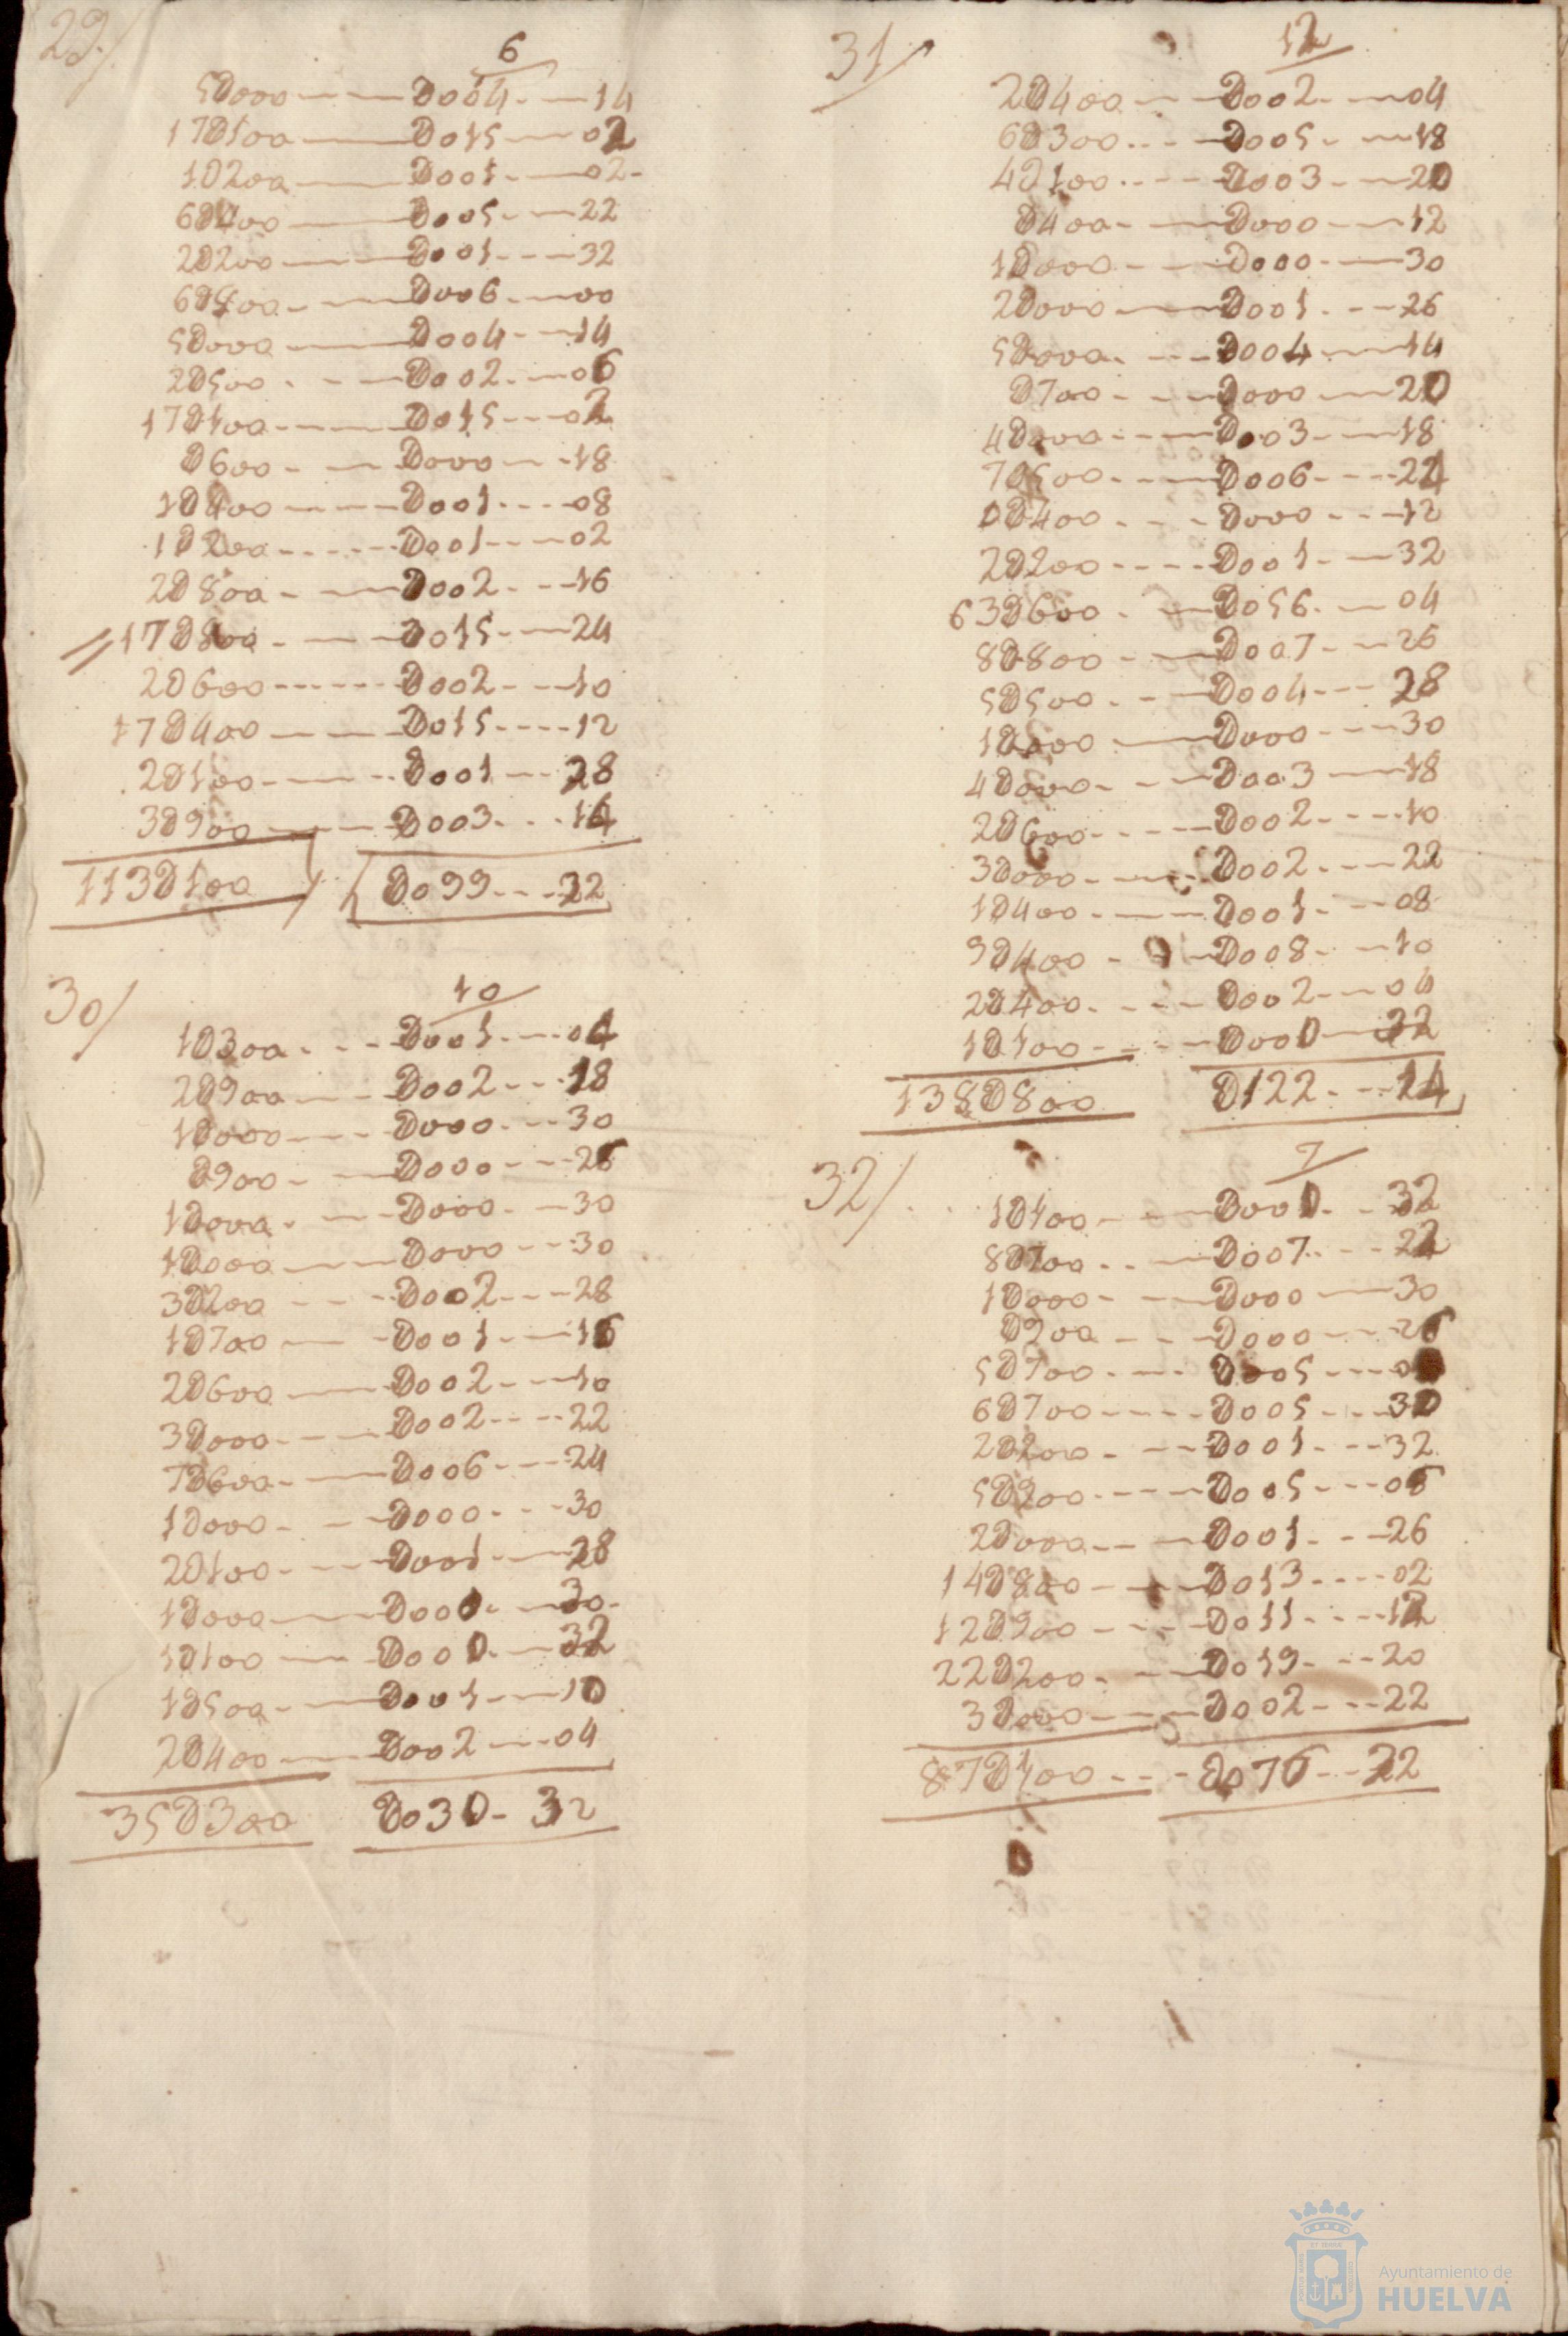 29/
6
5D000 — — D004 - — 14
17D100 — D015 — 02
1D200 — D001 - — 02 -
6D400 — D005 - — 22
2D200 — D001 - - - 32
6D800 - — D006 - — 00
5D000 — D004 - — 14
2D500 - - — D002 - — 06
17D100 - - - — D015 - - - 02
D600 - — D000 — - 18
1D400 — D001 - - - - 08
1D200 - - - - - - D001 - - — 02
2D800 - — D002 - - - 16
17D800 - — D015 - — 24
2D600 - - - - - - D002 - - - 10
17D400 — — D015 - - - - 12
2D100 - — - - D001 - - - 28
3D900 — D003 - - - 16
113D100 D099 - - - 22
30/
10
1D300 - - - — D001 - — 04
2D900 — D002 - - - 18
1D000 — - - D000 - - - 30
D900 - — D000 - - - 26
1D000 - - — D000 - — 30
1D000 — — D000 - - - 30
3D200 - - - - D002 - - - 28
1D700 — - D001 - — 16
2D600 — D002 - - — 10
3D000 - - — D002 - - - - 22
7D600 - — D006 - - - 24
1D000 - - — D000 - - - 30
2D100 - - - — D001 - — 28
1D000 — D000 - — 30 -
1D100 — D000 - — 32
1D500 - — D001 - — 10
2D400 — D002 - - - 04
35D300 D030 - 32
31/
12
2D400 - - — D002 - — 04
6D300 - - - — D005 - — 18
4D100 - - - - - D003 - — 20
D400 - — D000 - - — 12
1D000 - - — D000 - — 30
2D000 — D001 - - - 26
5D000 - - - - D004 - — 14
D700 - - - - D000 — 20
4D000 - - - — D003 - — 18
7D500 - - - — D006 - - - - 24
D400 - - - - D000 - - — 12
2D200 - - - - D001 - — 32
63D600 - — D056 - — 04
8D800 - — D007 - - - 26
5D500 - - — D004 - - - 28
1D000 — D000 - - - 30
4D000 - - — D003 — 18
2D600 - - - — D002 - - - - 10
3D000 - - — D002 - - — 22
1D400 - — D001 - - - 08
9D400 - — D008 - — 10
2D400 - - - - D002 - — 04
1D100 - - - — D000 — 32
138D800 D122 - - - 14
32/
7
1D100 - - — D000 - - 32
8D700 - - — D007 - - - 24
1D000 - - — D000 — 30
D900 - - - — D000 - - - 26
5D700 - - — D005 - - -
6D700 - - - - - D005 - - - 30
2D200 - - - — D001 - - - 32
5D900 - - - - - D005 - - - 06
2D000 - - — D001 - - - 26
14D800 - — D013 - - - - 02
12D900 - - - — D011 - - - - 12
22D200 - - — D019 - - - 20
3D000 — D002 - - - 22
87D100 - - - - D076 - - 22
Ayuntamiento de
HUELVA